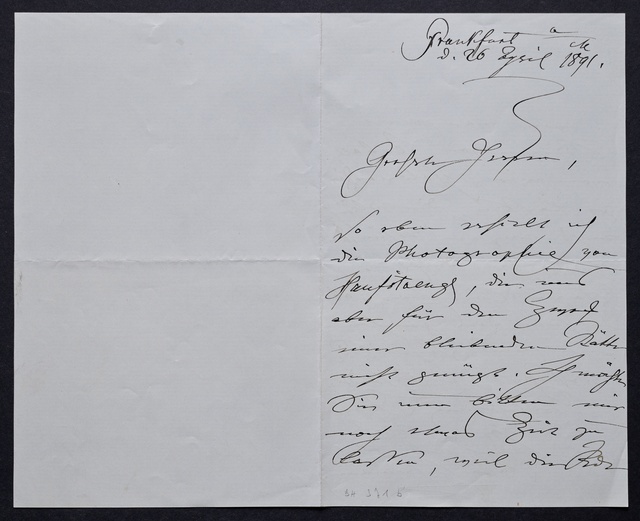 Frankfurt a M
d. 26 April 1891.
Geehrter Herr,
so eben erhielt ich
die Photographie von
Hanfstaengl, die uns
aber für den Zweck
einer bleibenden
nicht genügt. Ich möchte
Sie nun bitten mir
noch etwas Zeit zu
lassen, weil die